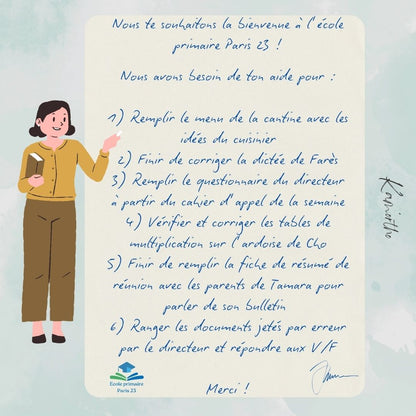 Nous te souhaitons la bienvenue à l'école
primaire Paris 23 !
Nous avons besoin de ton aide pour :
1) Remplir le menu de la cantine avec les
idées du cuisinier
2) Finir de corriger la dictée de Farès
3) Remplir le questionnaire du directeur
à partir du cahier d'appel de la semaine
4) Vérifier et corriger les tables de
multiplication sur l'ardoise de Cho
5) Finir de remplir la fiche de résumé de
réunion avec les parents de Tamara pour
parler de son bulletin
6) Ranger les documents jetés par erreur
par le directeur et répondre aux V/F
Merci !
Ecole primaire
Paris 23